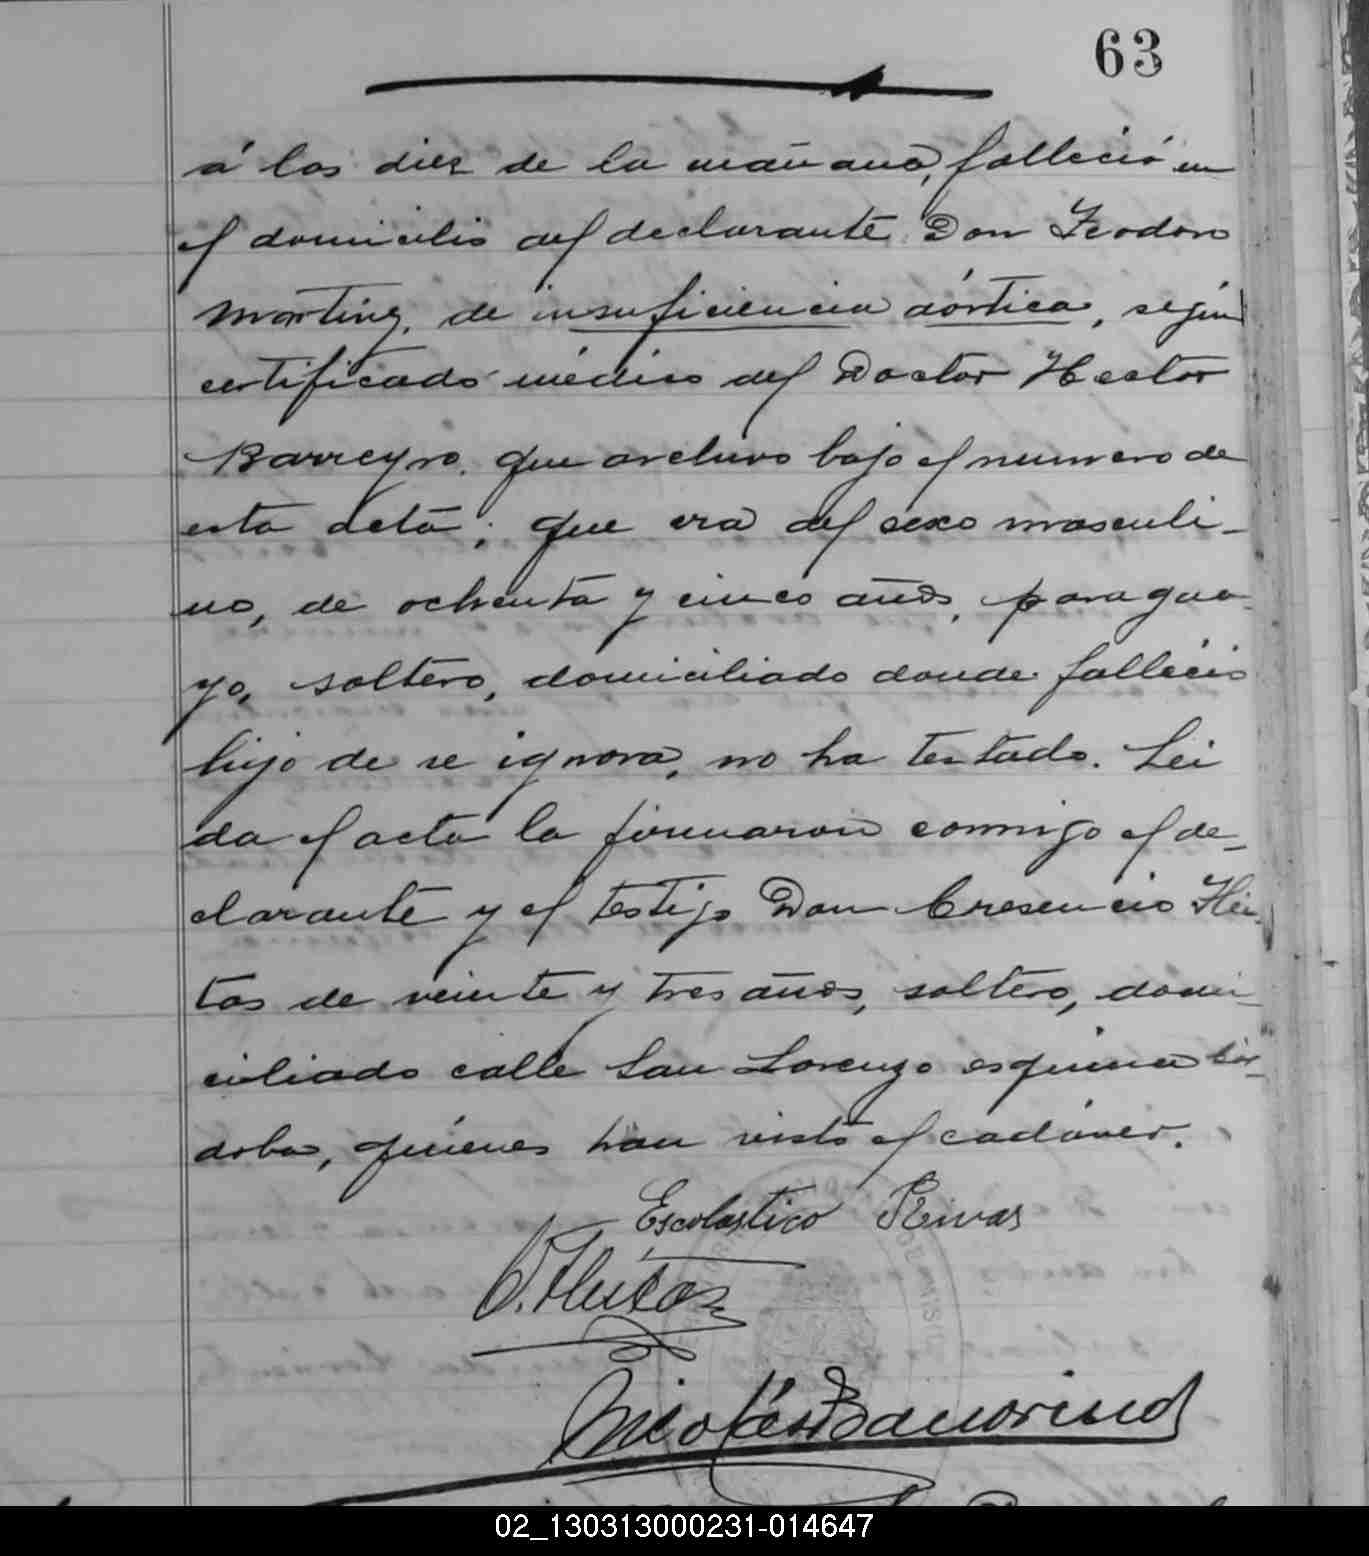 63
á las diez de la mañana, falleció en
el domicilio del declarante Don Teodoro
Martinez, de insuficiencia aórtica, según
certificado médico del Doctor Hector
Barreyro, que archivo bajo el numero de
esta acta; que era del sexo masculi-
no, de ochenta y cinco años, paragua-
yo, soltero, domiciliado donde falleció
hijo de se ignora, no ha testado. Lei
da el acta la firmaron conmigo el de-
clarante y el testigo Don Cresencio
tas de veinte y tres años, soltero, domi-
ciliado calle San Lorenzo esquina Cór-
doba, quienes han visto el cadáver.
Escolastico Rivas
02_130313000231-014647